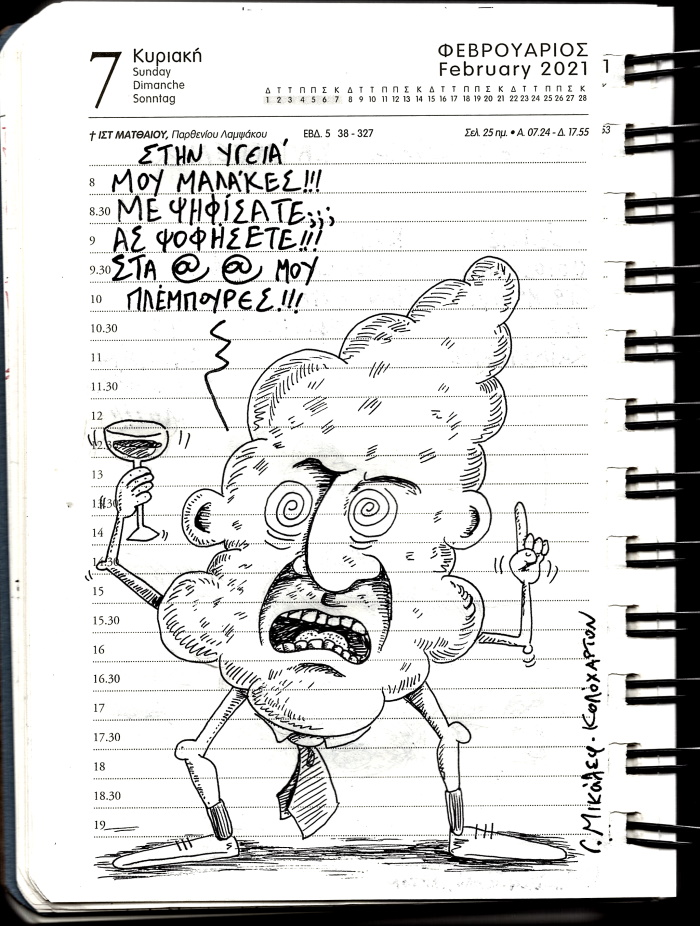 7
Κυριακή
Sunday
Dimanche
Sonntag
ΦΕΒΡΟΥΑΡΙΟΣ
February 2021
Δ Τ Τ Π Π Σ Κ Δ Τ Τ Π Π Σ Κ Δ Τ Τ Π Π Σ Κ Δ Τ Τ Π Π Σ Κ
1 2 3 4 5 6 7 8 9 10 11 12 13 14 15 16 17 18 19 20 21 22 23 24 25 26 27 28
† ΙΣΤ ΜΑΤΘΑΙΟΥ, Παρθενίου Λαμψάκου ΕΒΔ. 5 38 - 327 Σελ. 25 ημ. • Α. 07.24 - Δ. 17.55
ΣΤΗΝ ΥΓΕΙΑ'
8 ΜΟΥ ΜΑΛΑΚΕΣ!!!
8.30 ΜΕ ΨΗΦΙΣΑΤΕ;;;
9 ΑΣ ΨΟΦΗΣΕΤΕ!!!
9.30 ΣΤΑ @ @ ΜΟΥ
10 ΠΛΕΜΠΟΥΡΕΣ!!!
10.30
11
11.30
12
12.30
13
13.30
14
14.30
15
15.30
16
16.30
17
17.30
18
18.30
19
Γ. Μικάλεφ. Κολόχαρτον